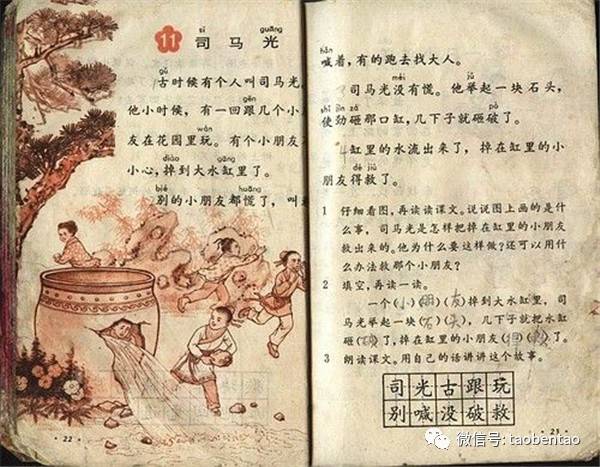 sī guāng
11 司马光
gǔ
古时候有个人叫司马光。
gēn
他小时候，有一回跟几个小
wán
友在花园里玩。有个小朋友
diào gāng
小心，掉到大水缸里了。
bié huāng
别的小朋友都慌了，叫
·22·
hǎn
喊着，有的跑去找大人。
méi jǔ
司马光没有慌。他举起一块石头，
shǐ jìn zá pò
使劲砸那口缸，几下子就砸破了。
缸里的水流出来了，掉在缸里的小
dé jiù
朋友得救了。
1 仔细看图，再读读课文。说说图上画的是什
么事，司马光是怎样把掉在缸里的小朋友
救出来的。他为什么要这样做？还可以用什
么办法救那个小朋友？
2 填空，再读一读。
一个(小)(朋)(友)掉到大水缸里，司
马光举起一块(石)(头)，几下子就把水缸
砸(破)了，掉在缸里的小朋友(得)(救)了。
3 朗读课文。用自己的话讲讲这个故事。
司光古跟玩
别喊没破救
·23·
微信号: taobentao